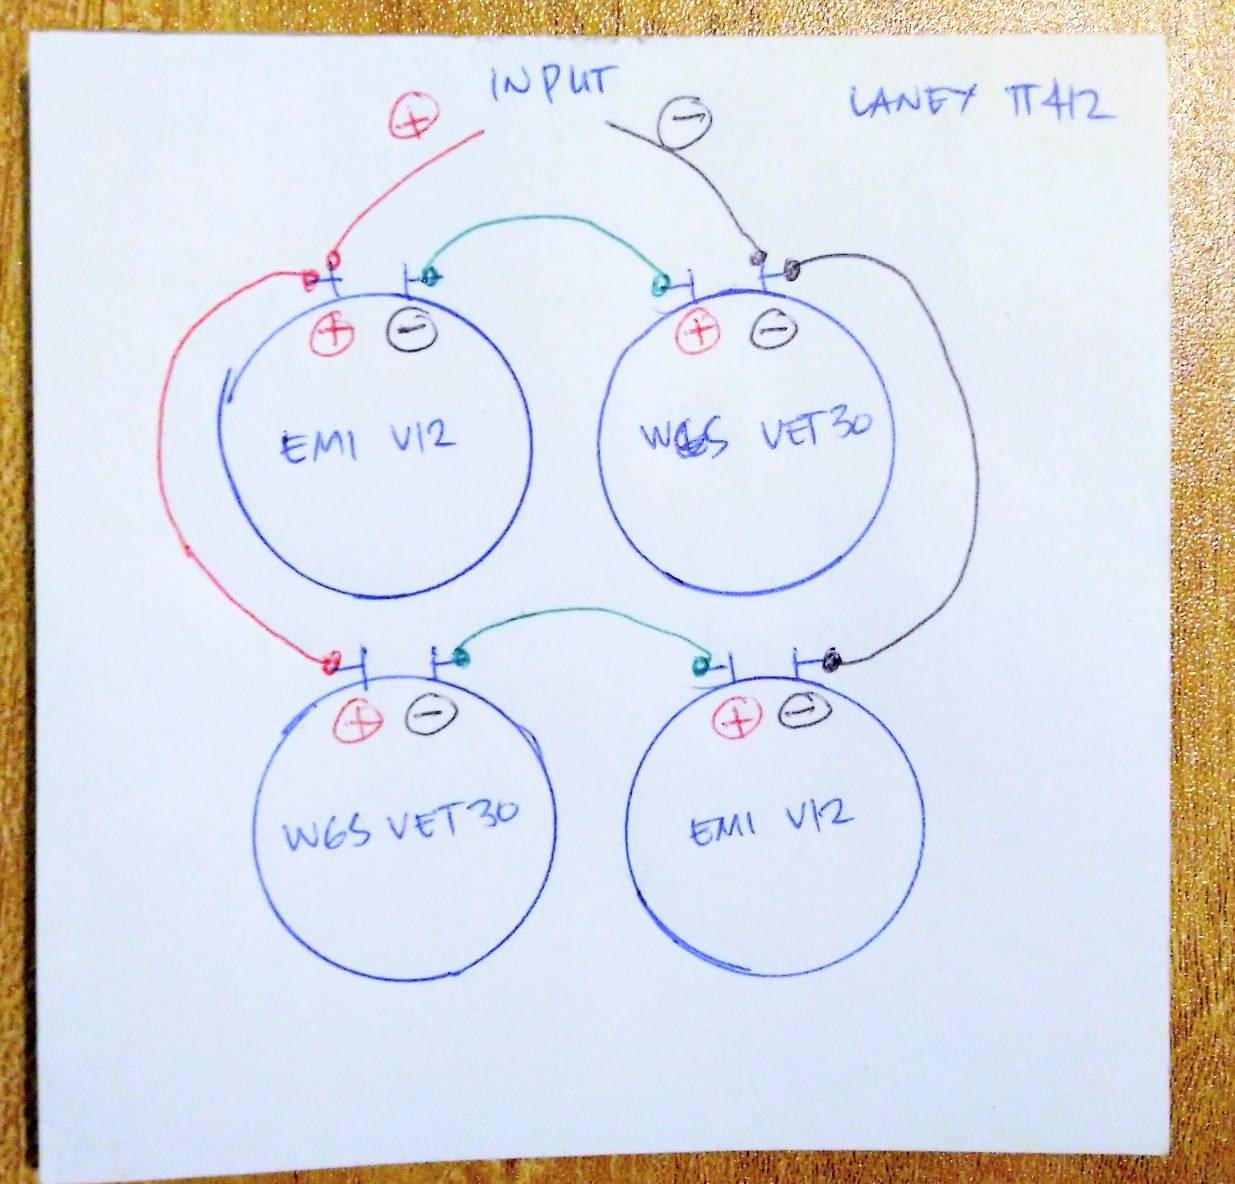 INPUT
LANEY TT412
+ -
+ - + -
EMI V12 WGS VET30
+ - + -
WGS VET30 EMI V12